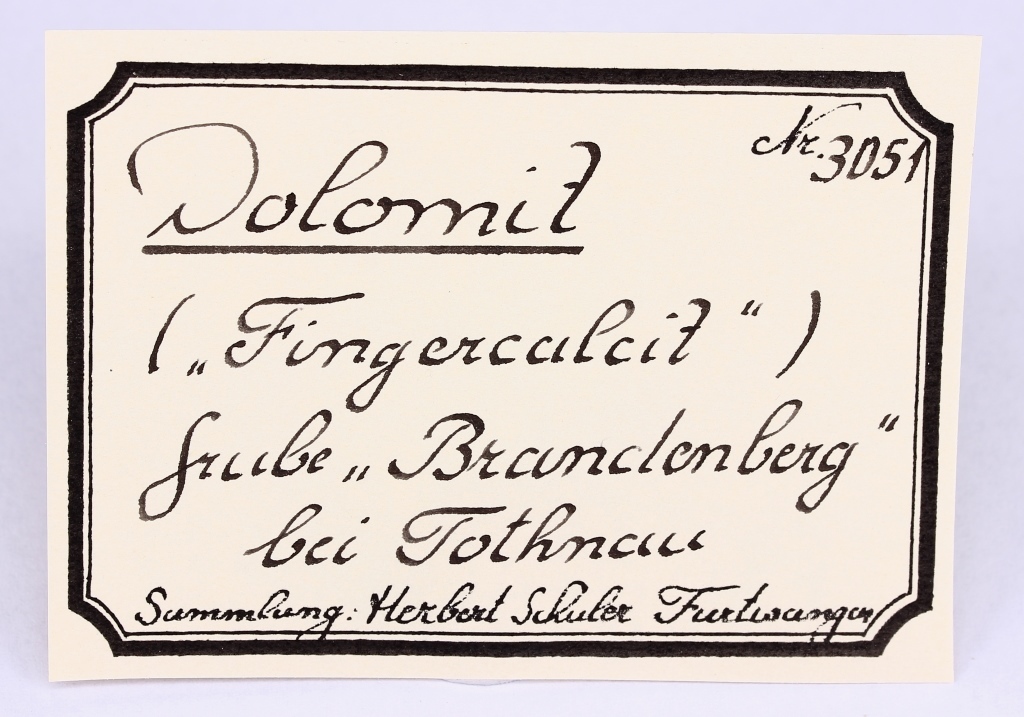 Nr. 3051
Dolomit
(„Fingercalcit“)
Grube „Brandenberg“
bei Tothnau
Sammlung: Herbert Schuler Furtwangen